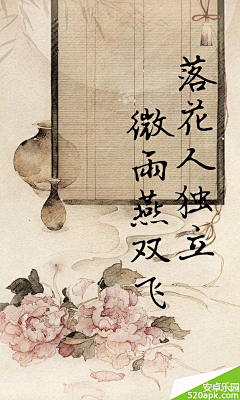 落花人独立
微雨燕双飞
安卓乐园
520apk.com